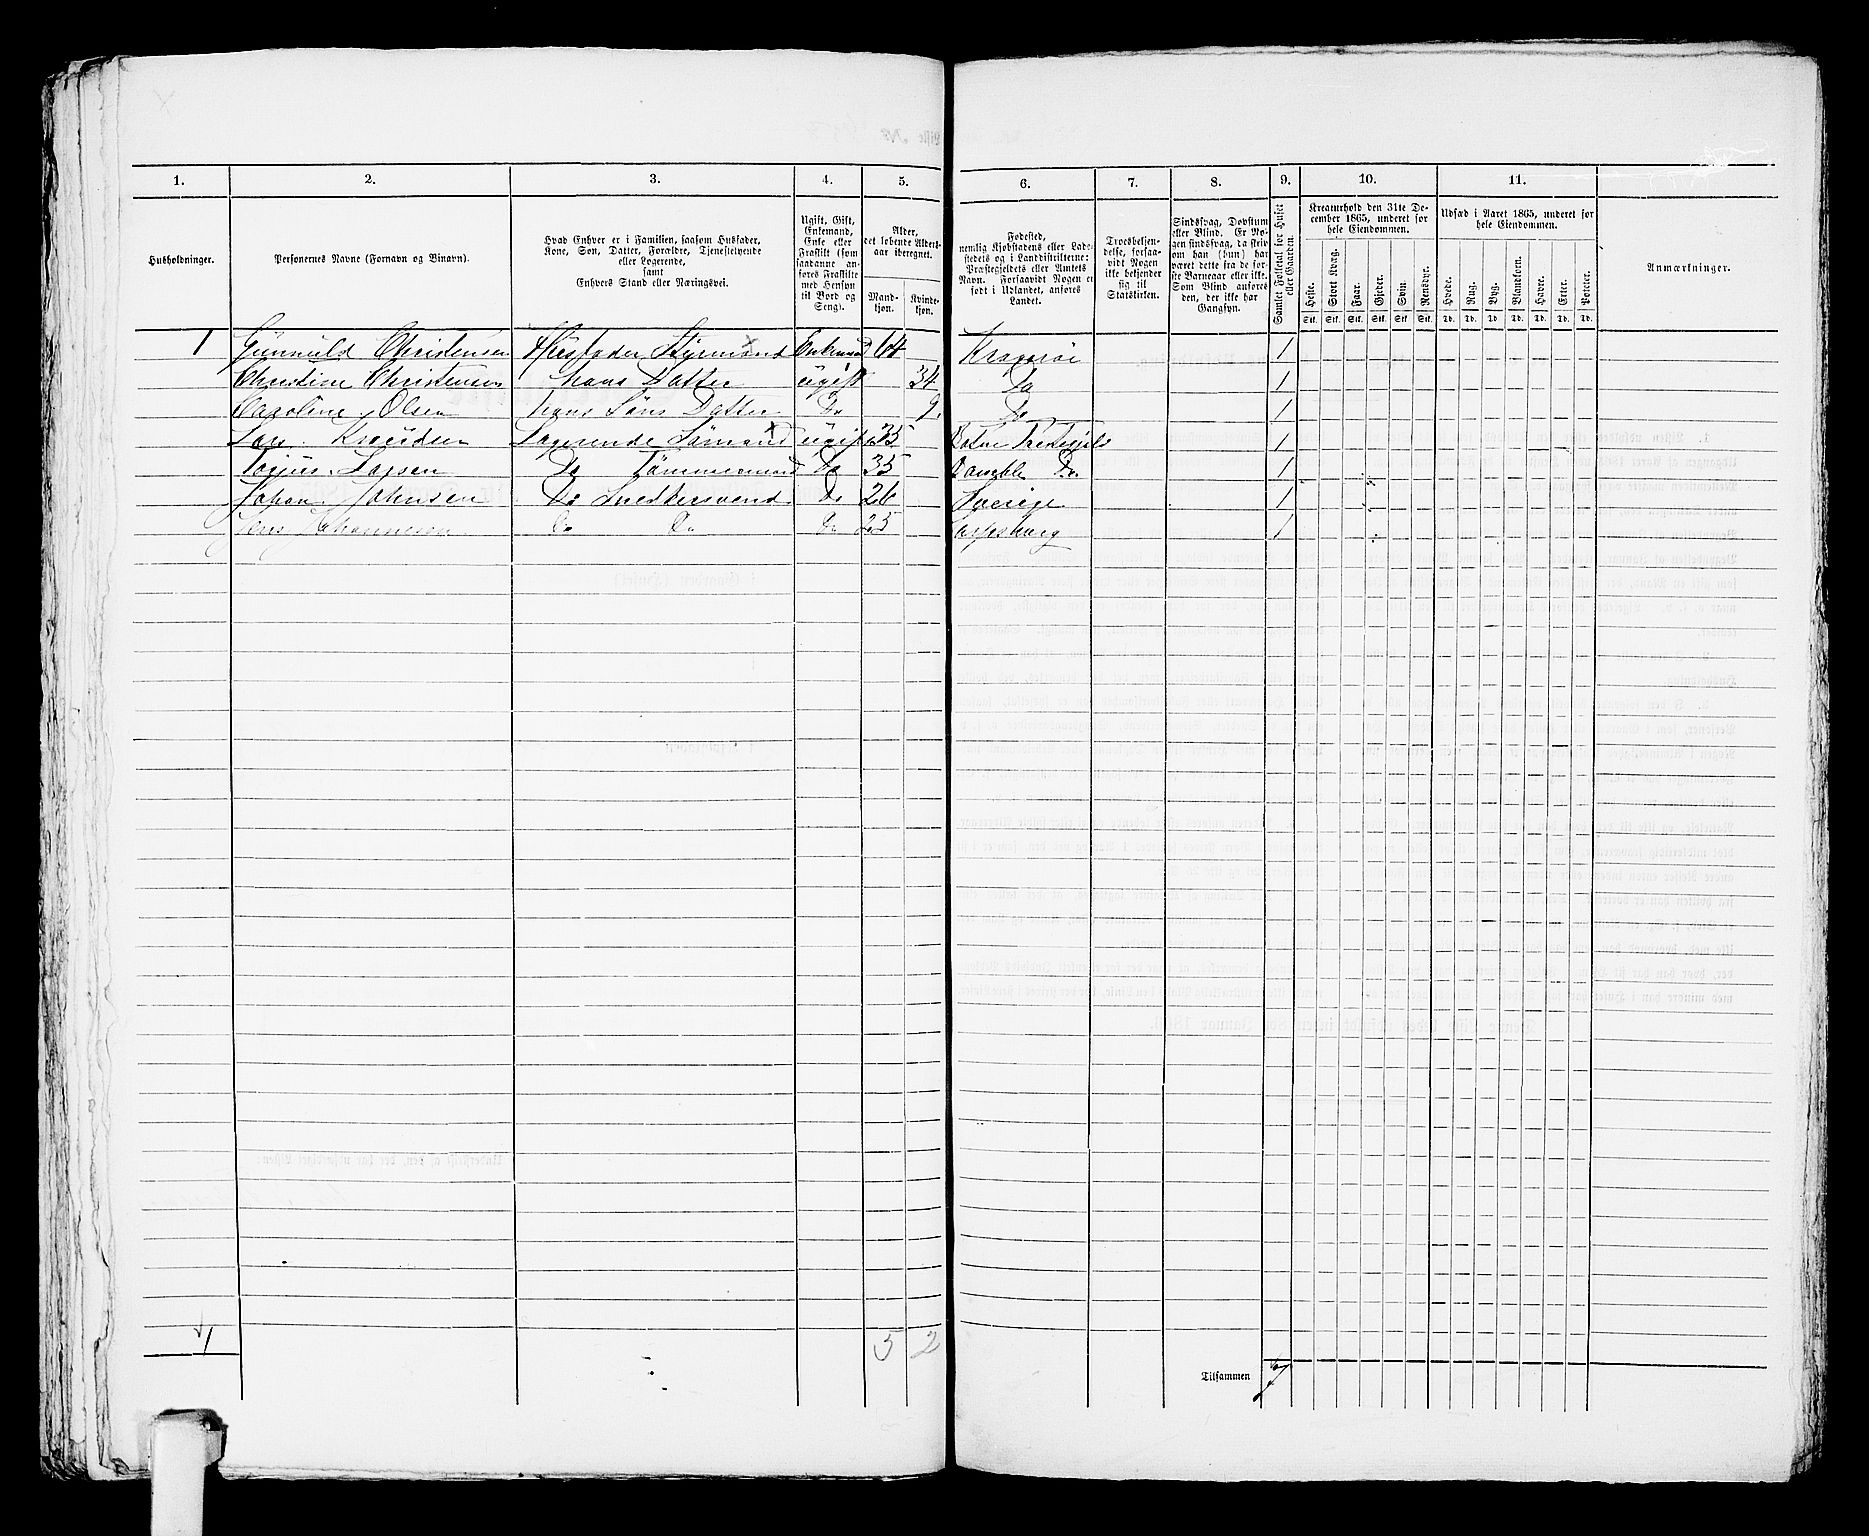 Liste No.
1. 2. 3. 4. 5. 6. 7. 8. 9. 10. 11.
Husholdninger.
Personernes Navne (Fornavn og Binavn).
Hvad Enhver er i Familien, saasom Husfader,
Kone, Søn, Datter, Forældre, Tjenestetyende
eller Logerende,
samt
Enhvers Stand eller Næringsvei.
Ugift, Gift,
Enkemand,
Enke eller
Fraskilt (som
saadanne an-
føres Fraskilte
med Hensyn
til Bord og
Seng).
Alder,
det løbende Alders-
aar iberegnet.
Mand-
kjøn.
Kvinde-
kjøn.
Fødested,
nemlig Kjøbstadens eller Lade-
stedets og i Landdistrikterne:
Præstegjeldets eller Amtets
Navn. Forsaavidt Nogen er
født i Udlandet, anføres
Landet.
Troesbekjen-
delse, forsaa-
vidt Nogen
ikke bekjender
sig til
Statskirken.
Sindssvag, Døvstum
eller Blind. Er No-
gen sindssvag, da skriv
om han (hun) har
været dette fra de før-
ste Barneaar eller ikke.
Som Blind anføres
den, der ikke har
Gangsyn.
Samlet Folketal for Huset
eller Gaarden.
Kreaturhold den 31te De-
cember 1865, underet for
hele Eiendommen.
Heste. Stort Kvæg. Faar. Gjeder. Svin. Rensdyr.
Stk. Stk. Stk. Stk. Stk. Stk.
Udsæd i Aaret 1865, underet for
hele Eiendommen.
Hvede. Rug. Byg. Blandkorn. Havre. Erter. Poteter.
Td. Td. Td. Td. Td. Td. Td.
Anmærkninger.
1 Gunnuld Christensen Husfader Styrmand Enkemand 64 Kragerøe 1
Christine Christensen hans Datter ugift 34 Do 1
Caroline Olsen hans Søns Datter Do 9 Do 1
Lars Knudsen Logerende Sømand ugift 35 1
Torjus Larsen Do Tømmermand Do 35 Bamble Do 1
Johan Johnsen Do Snedkersvend Do 26 Sverige 1
Jens Johannesen Do Do Do 25 Sarpsborg 1
1 5 2
Tilsammen 7